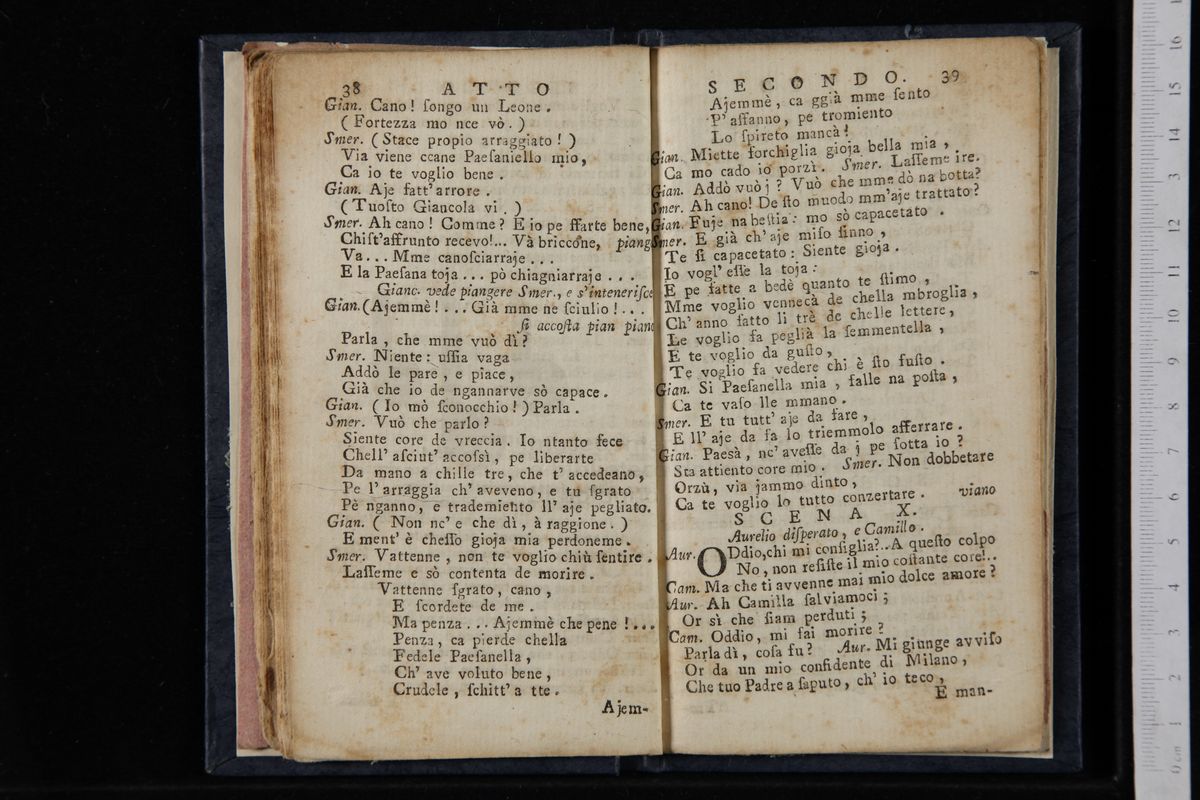 38 ATTO
Gian. Cano! ſongo un Leone.
( Fortezza mo nce vò. )
Smer. ( Stace propio arraggiato! )
Via viene ccane Paeſaniello mio,
Ca io te voglio bene.
Gian. Aje fatt' arrore.
( Tuoſto Giancola vi. )
Smer. Ah cano! Comme? E io pe ffarte bene,
Chiſt'affrunto recevo!... Và briccone, piang
Va... Mme canoſciarraje...
E la Paeſana toja... pò chiagniarraje...
Gianc. vede piangere Smer., e s'inteneriſce
Gian. (Ajemmè!... Già mme ne ſciulio!...
ſi accoſta pian piano
Parla, che mme vuò dì?
Smer. Niente: uſſia vaga
Addò le pare, e piace,
Già che io de ngannarve sò capace.
Gian. ( Io mò ſconocchio! ) Parla.
Smer. Vuò che parlo?
Siente core de vreccia. Io ntanto fece
Chell' aſciut' accoſsì, pe liberarte
Da mano a chille tre, che t' accedeano,
Pe l' arraggia ch' aveveno, e tu ſgrato
Pè nganno, e trademiento ll' aje pegliato.
Gian. ( Non nc' e che dì, à raggione. )
E ment' è cheſſo gioja mia perdoneme.
Smer. Vattenne, non te voglio chiù ſentire.
Laſſeme e sò contenta de morire.
Vattenne ſgrato, cano,
E ſcordete de me.
Ma penza... Ajemmè che pene!...
Penza, ca pierde chella
Fedele Paeſanella,
Ch' ave voluto bene,
Crudele, ſchitt' a tte.
Ajem-
SECONDO. 39
Ajemmè, ca ggià mme ſento
P' affanno, pe tromiento
Lo ſpireto mancà!
Gian. Miette forchiglia gioja bella mia,
Ca mo cado io porzì. Smer. Laſſeme ire.
Gian. Addò vuò j? Vuò che mme dò na botta?
Smer. Ah cano! De ſto muodo mm'aje trattato?
Gian. Fuje na beſtia: mo sò capacetato.
Smer. E già ch'aje miſo ſinno,
Te ſi capacetato: Siente gioja.
Io vogl' eſſe la toja:
E pe fatte a bedè quanto te ſtimo,
Mme voglio vennecà de chella mbroglia,
Ch' anno fatto li trè de chelle lettere,
Le voglio fa peglià la ſemmentella,
E te voglio da guſto,
Te voglio fa vedere chi è ſto fuſto.
Gian. Si Paeſanella mia, falle na poſta,
Ca te vaſo lle mmano.
Smer. E tu tutt' aje da fare,
E ll' aje da fa lo triemmolo afferrare.
Gian. Paesà, nc' aveſſe da j pe ſotta io?
Sta attiento core mio. Smer. Non dobbetare
Orzù, via jammo dinto,
Ca te voglio lo tutto conzertare. viano
SCENA X.
Aurelio diſperato, e Camillo.
Aur. ODdio, chi mi conſiglia?.. A queſto colpo
No, non reſiſte il mio coſtante core!..
Cam. Ma che ti avvenne mai mio dolce amore?
Aur. Ah Camilla ſalviamoci;
Or sì che ſiam perduti;
Cam. Oddio, mi fai morire?
Parla dì, coſa fu? Aur. Mi giunge avviſo
Or da un mio confidente di Milano,
Che tuo Padre a ſaputo, ch' io teco,
E man-